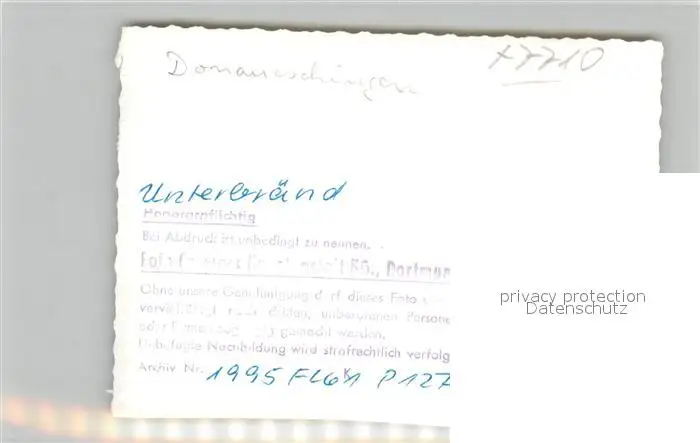 Donaueschingen
x7710
Unterbränd
Honorarpflichtig
Bei Abdruck ist unbedingt zu nennen.
Foto KG., Dortmun
Ohne unsere Genehmigung darf dieses Foto
vervielfältigt unbefugten Persone
oder gemacht werden.
Unbefugte Nachbildung wird strafrechtlich verfolg
Archiv Nr. 1995 P 127
privacy protection
Datenschutz